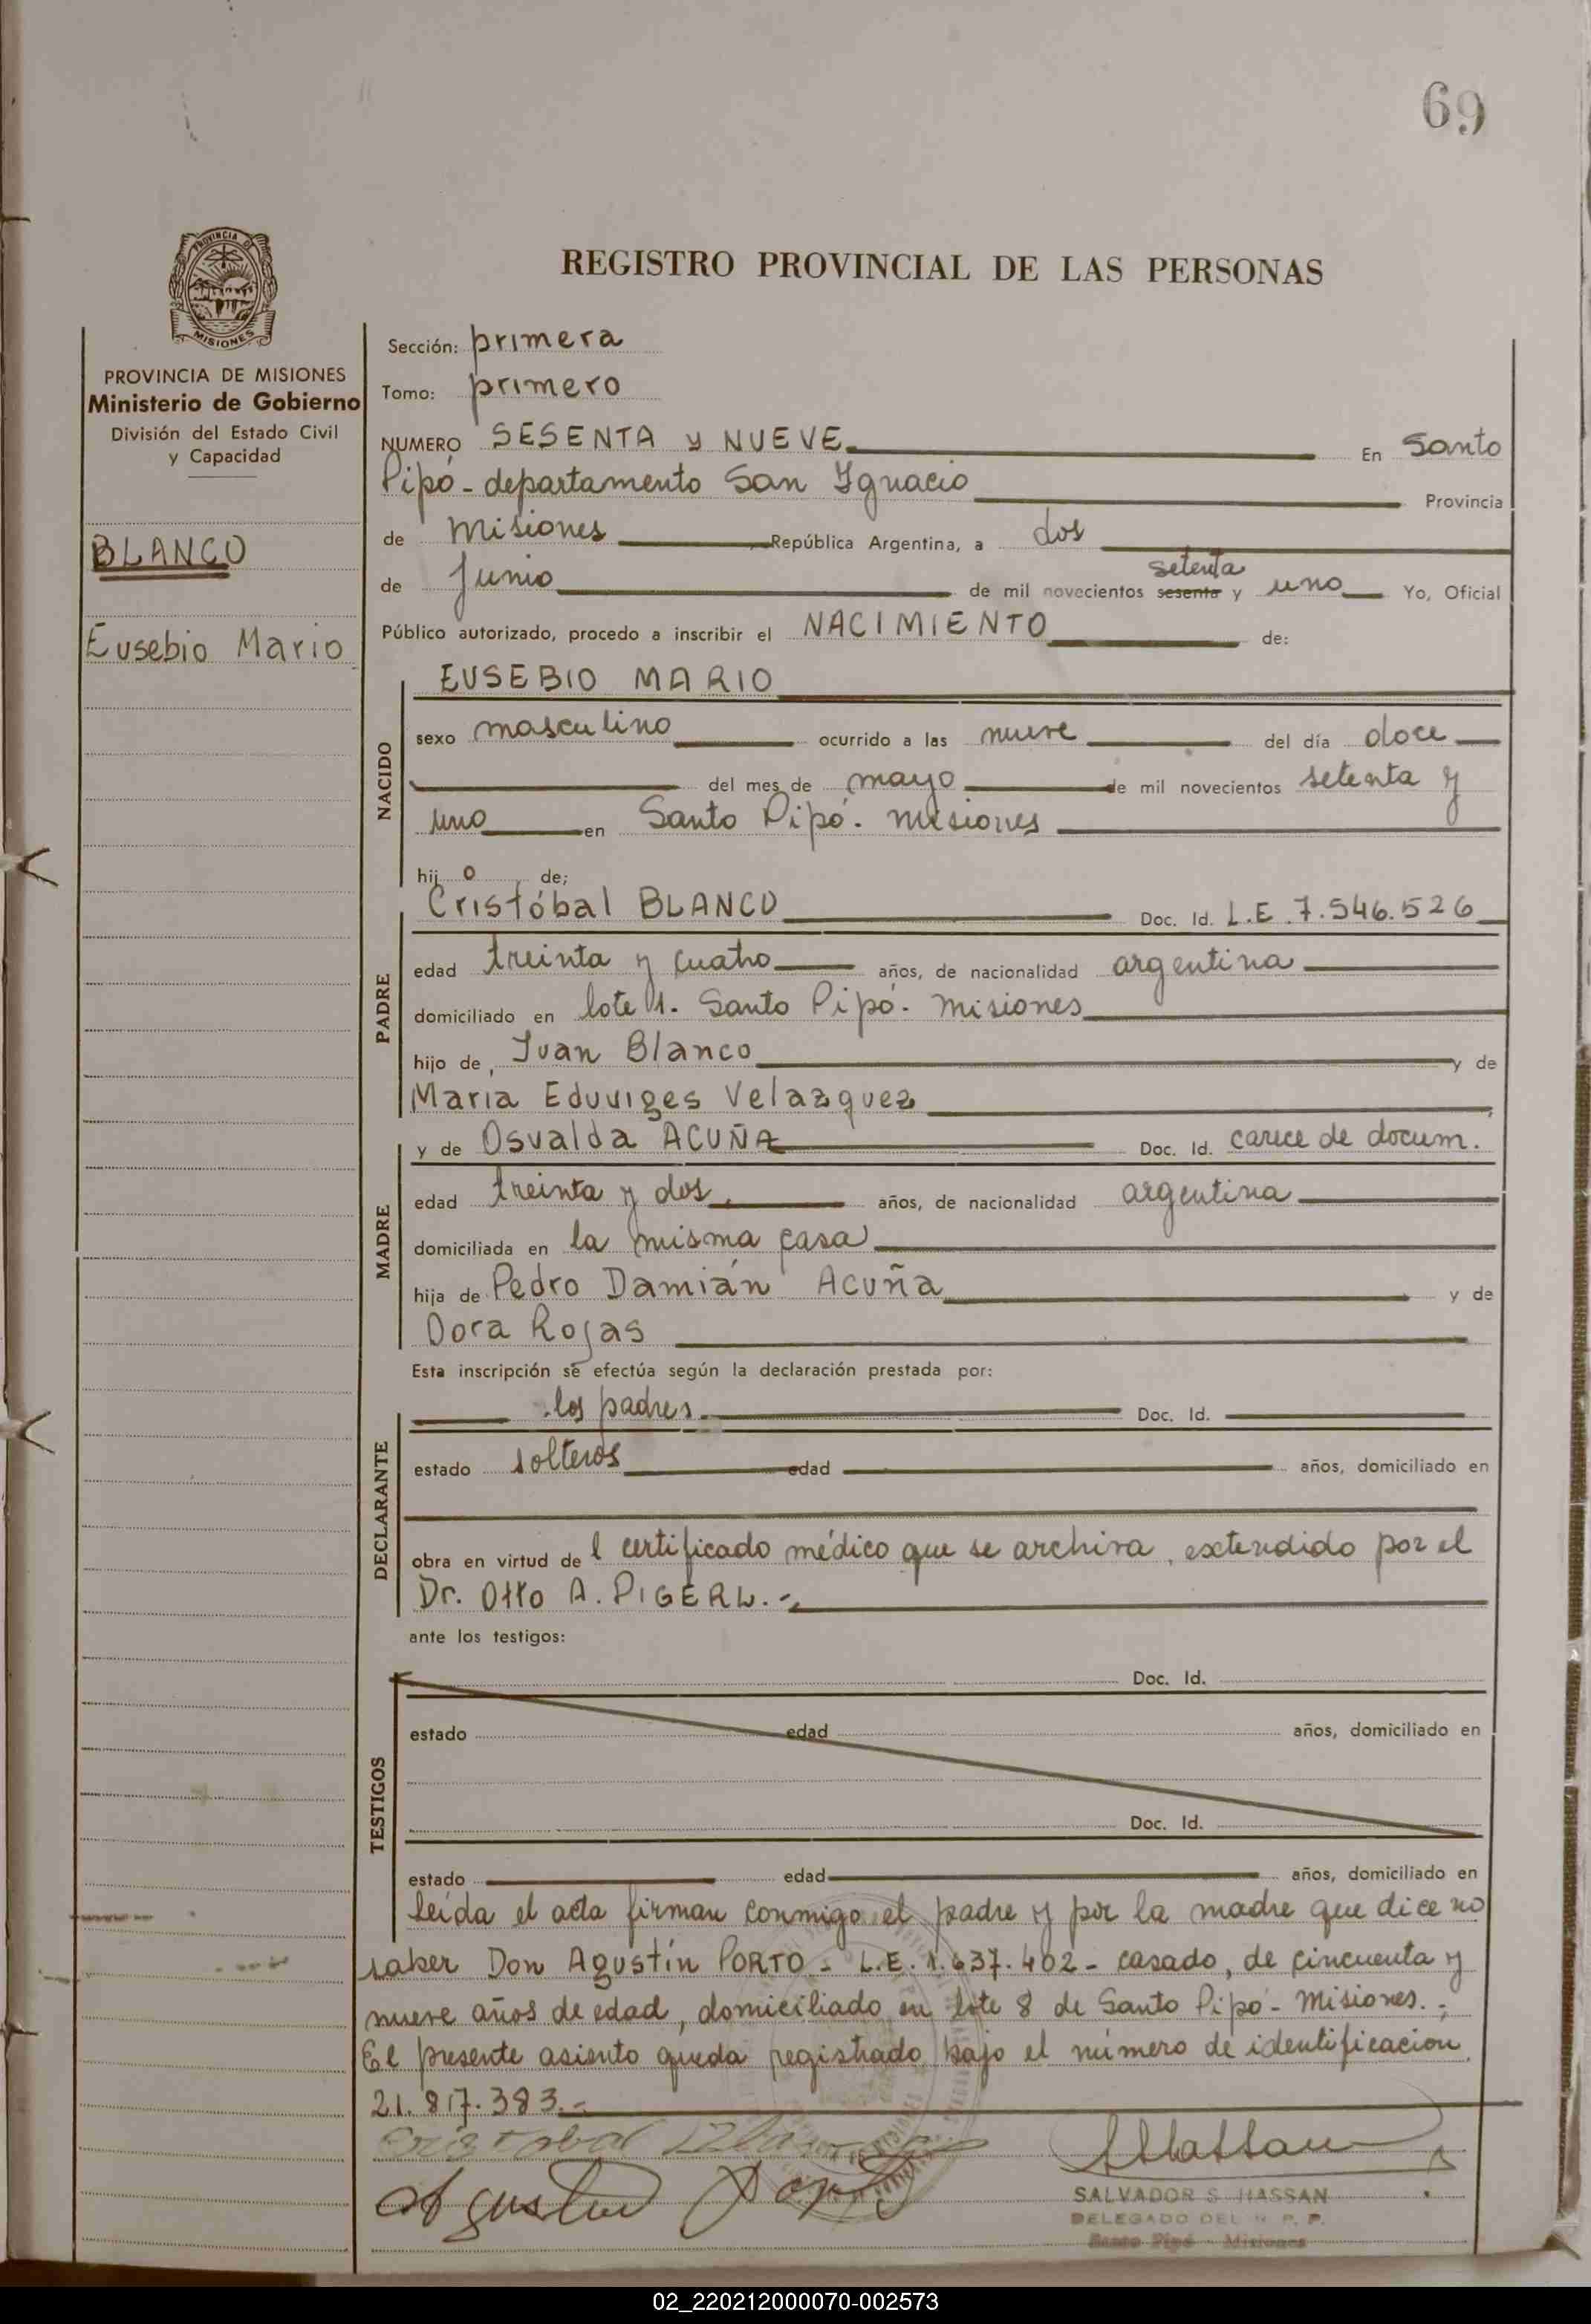 69
PROVINCIA DE
MISIONES
PROVINCIA DE MISIONES
Ministerio de Gobierno
División del Estado Civil
y Capacidad
BLANCO
Eusebio Mario
REGISTRO PROVINCIAL DE LAS PERSONAS
Sección: primera
Tomo: primero
NUMERO SESENTA y NUEVE En Santo
Pipó - departamento San Ignacio Provincia
de Misiones República Argentina, a dos
setenta
de Junio de mil novecientos sesenta y uno Yo, Oficial
Público autorizado, procedo a inscribir el NACIMIENTO de:
NACIDO
EUSEBIO MARIO
sexo masculino ocurrido a las nueve del día doce
del mes de mayo de mil novecientos setenta y
uno en Santo Pipó. misiones
hij o de;
PADRE
Cristóbal BLANCO Doc. Id. L.E. 7.546.526
edad treinta y cuatro años, de nacionalidad argentina
domiciliado en lote 1. Santo Pipó. misiones
hijo de, Juan Blanco y de
Maria Eduviges Velazquez
MADRE
y de Osvalda ACUÑA Doc. Id. carece de docum.
edad treinta y dos. años, de nacionalidad argentina
domiciliada en la misma casa
hija de Pedro Damián Acuña y de
Dora Rojas
Esta inscripción se efectúa según la declaración prestada por:
DECLARANTE
los padres Doc. Id.
estado solteros edad años, domiciliado en
obra en virtud de l certificado médico que se archiva, extendido por el
Dr. Otto A. PIGERL.-
ante los testigos:
TESTIGOS
Doc. Id.
estado edad años, domiciliado en
Doc. Id.
estado edad años, domiciliado en
leída el acta firman conmigo el padre y por la madre que dice no
saber Don Agustín PORTO - L.E. 1.637.402 - casado, de cincuenta y
nueve años de edad, domiciliado en lote 8 de Santo Pipó - Misiones.-
El presente asiento queda registrado bajo el número de identificación
21.817.383.-
Cristobal Blanco
Agustin Porto
SALVADOR S. HASSAN
DELEGADO DEL R. P. P.
Santo Pipó - Misiones
02_220212000070-002573